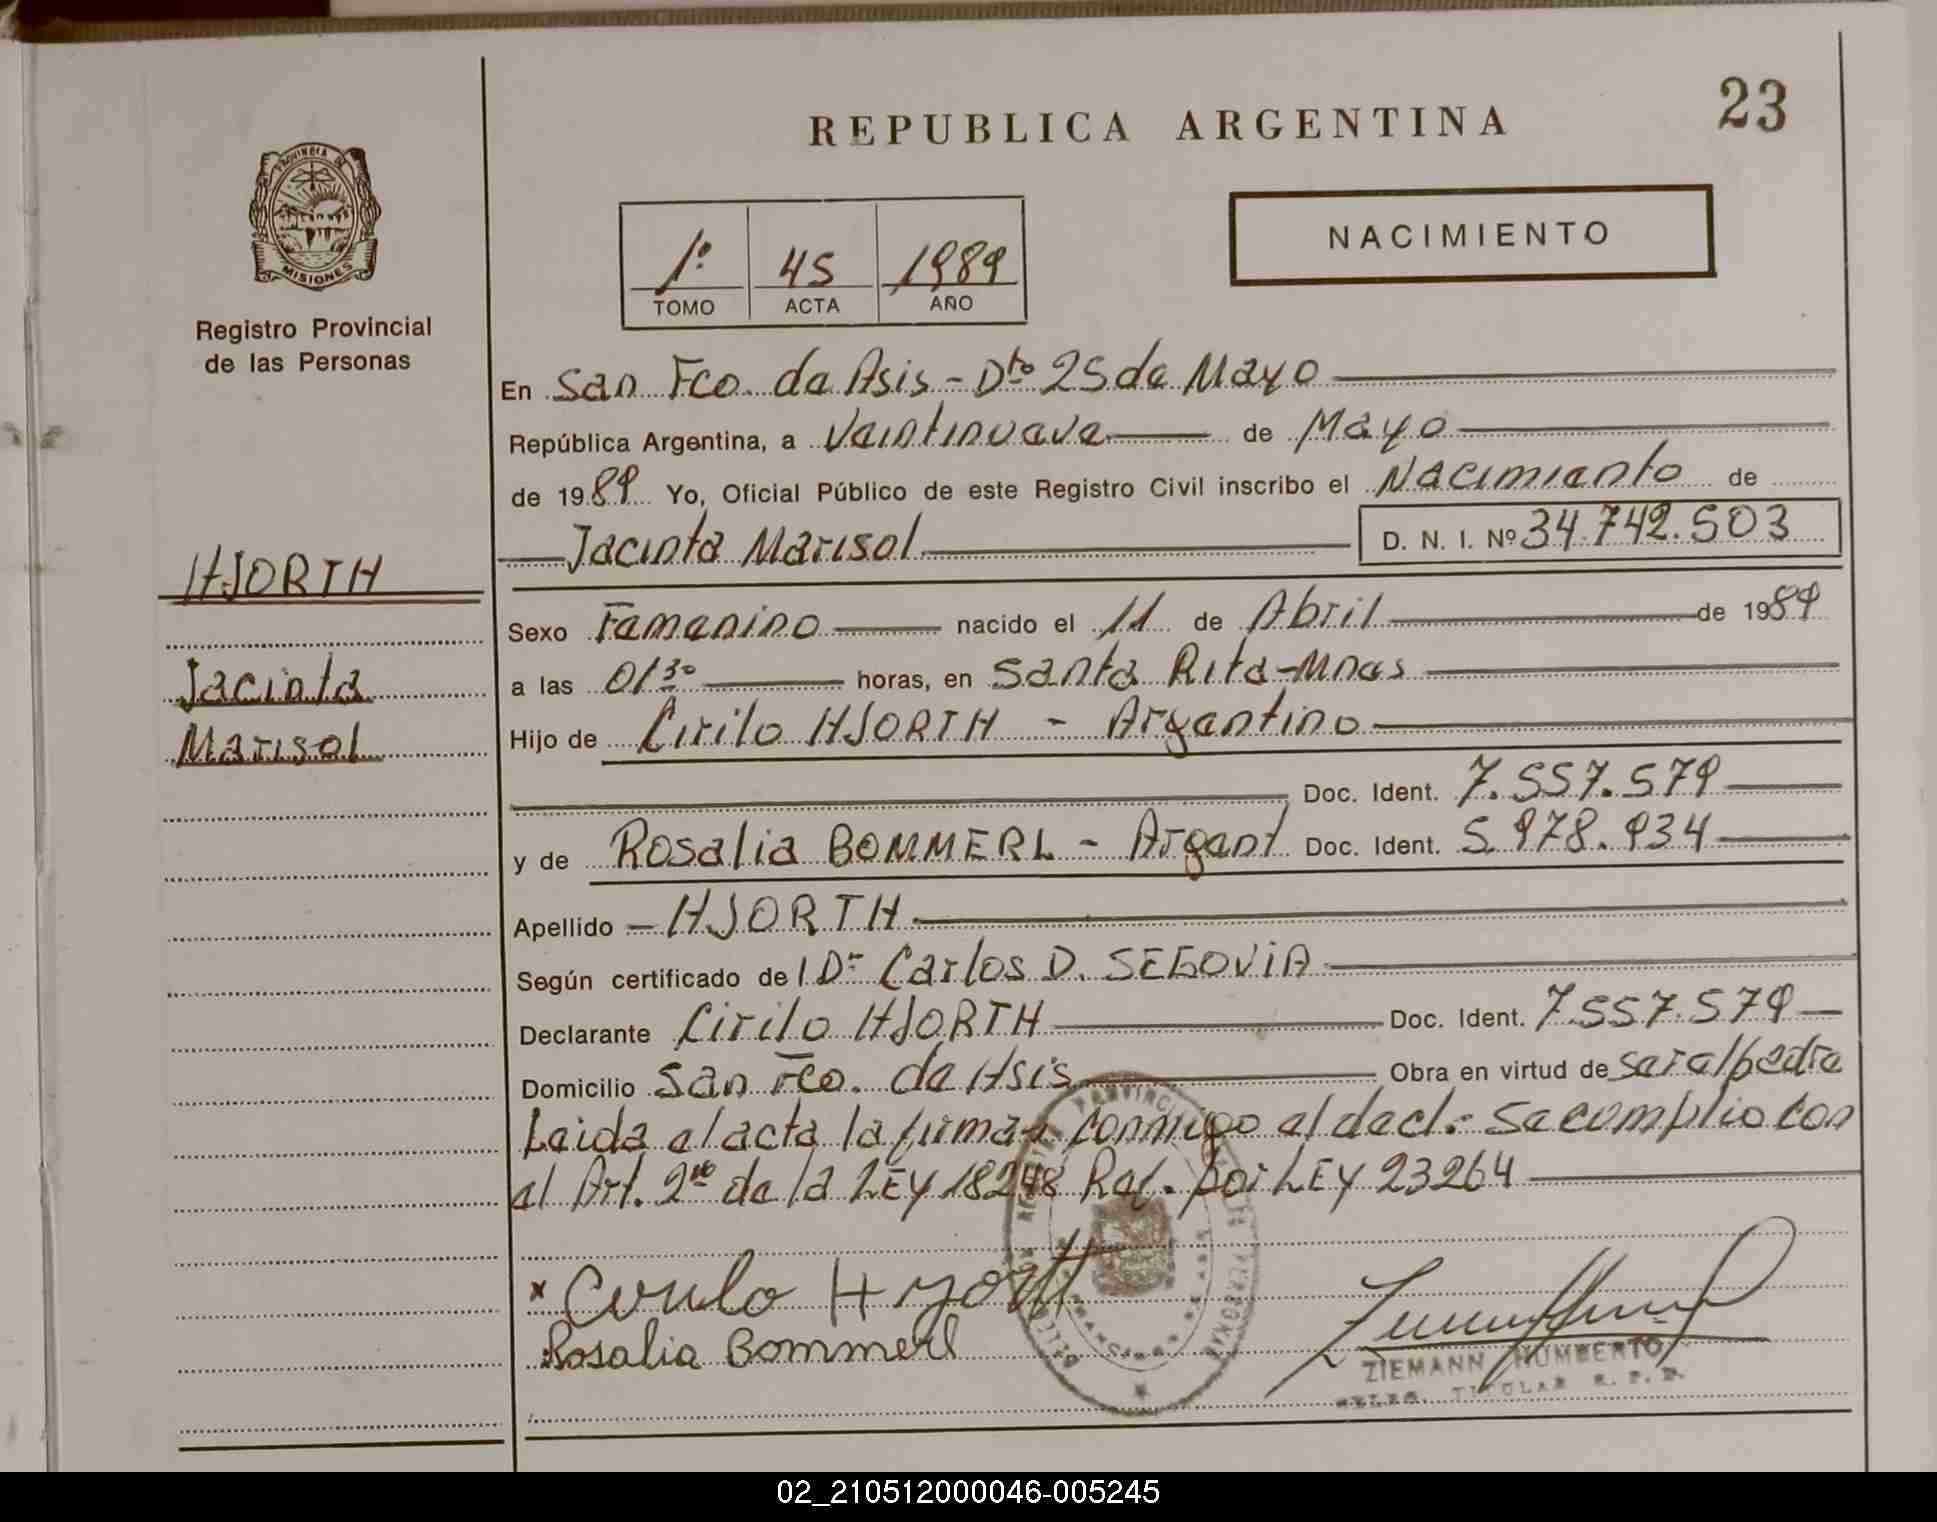 23
REPUBLICA ARGENTINA
PROVINCIA DE
MISIONES
Registro Provincial
de las Personas
1º 45 1989
TOMO ACTA AÑO
NACIMIENTO
En San Fco. de Asis - Dto 25 de Mayo
República Argentina, a Veintinueve de Mayo
de 1989 Yo, Oficial Público de este Registro Civil inscribo el Nacimiento de
Jacinta Marisol D. N. I. Nº 34.742.503
HJORTH
Jacinta
Marisol
Sexo Femenino nacido el 11 de Abril de 1989
a las 01³⁰ horas, en Santa Rita-Mnes
Hijo de Cirilo HJORTH - Argentino
Doc. Ident. 7.557.579
y de Rosalia BOMMERL - Argent Doc. Ident. 5.978.934
Apellido - HJORTH
Según certificado del Dr Carlos D. SEGOVIA
Declarante Cirilo HJORTH Doc. Ident. 7.557.579
Domicilio San Fco. de Asis Obra en virtud de ser el padre
Leida el acta la firman conmigo el decl.- Se cumplio con
el Art. 2do de la LEY 18248 Ref. por LEY 23264
x Cirilo Hjorth
Rosalia Bommerl
ZIEMANN HUMBERTO
DELEG. TITULAR R. P. P.
02_210512000046-005245